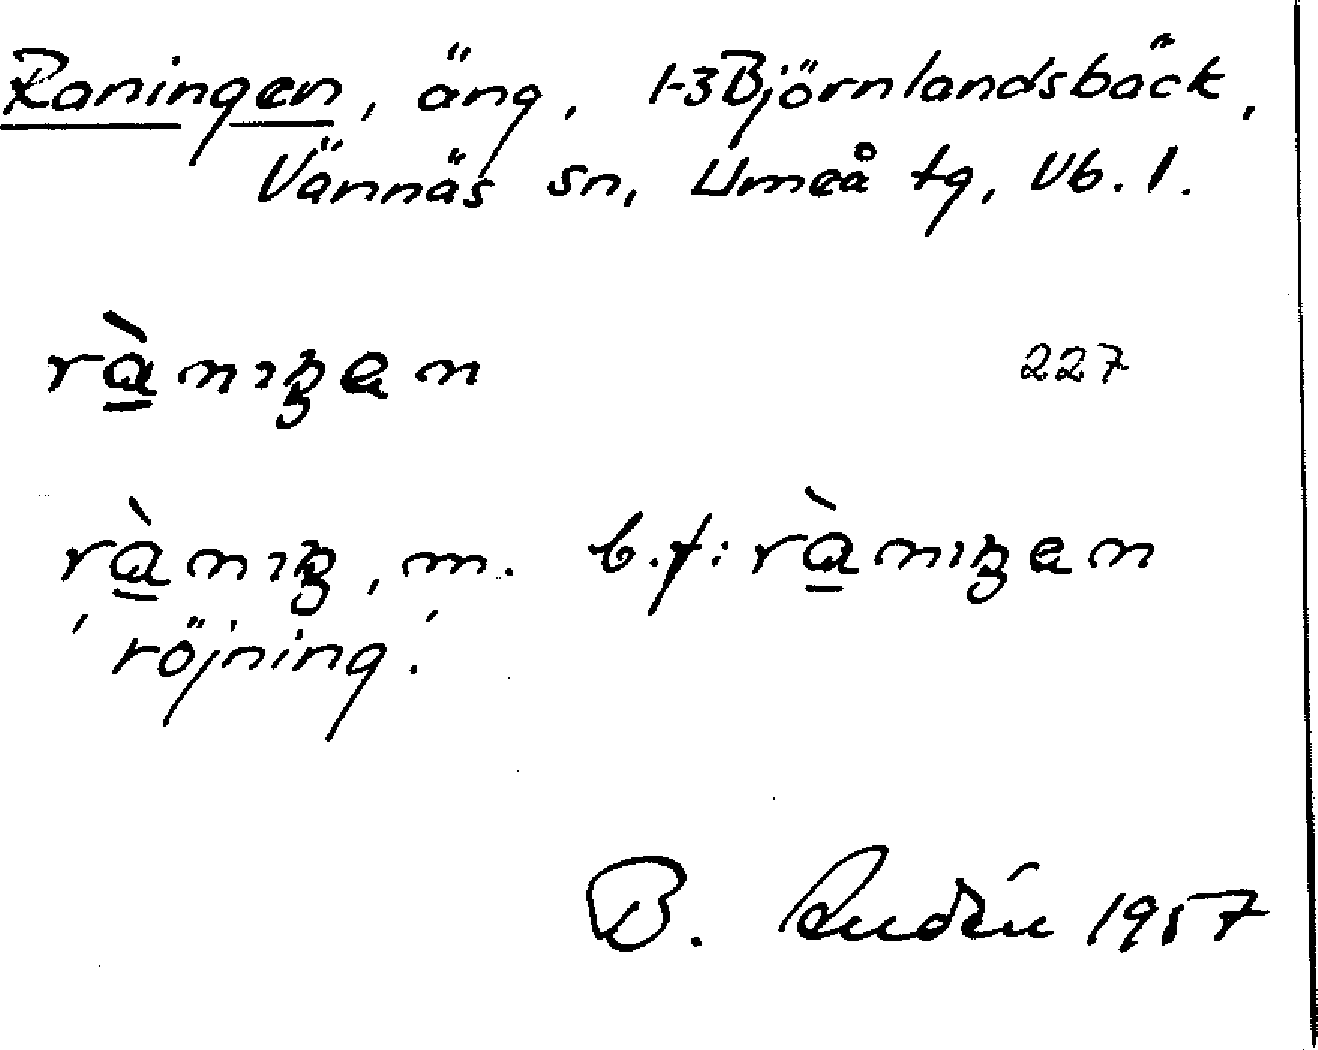 Raningen, äng, 1-3 Björnlandsbäck,
Vännäs sn, Umeå tg, Vb. l.
rànıŋen 227
rànıŋ, m. b.f: rànıŋen
'röjning.'
B. Rudin 1957